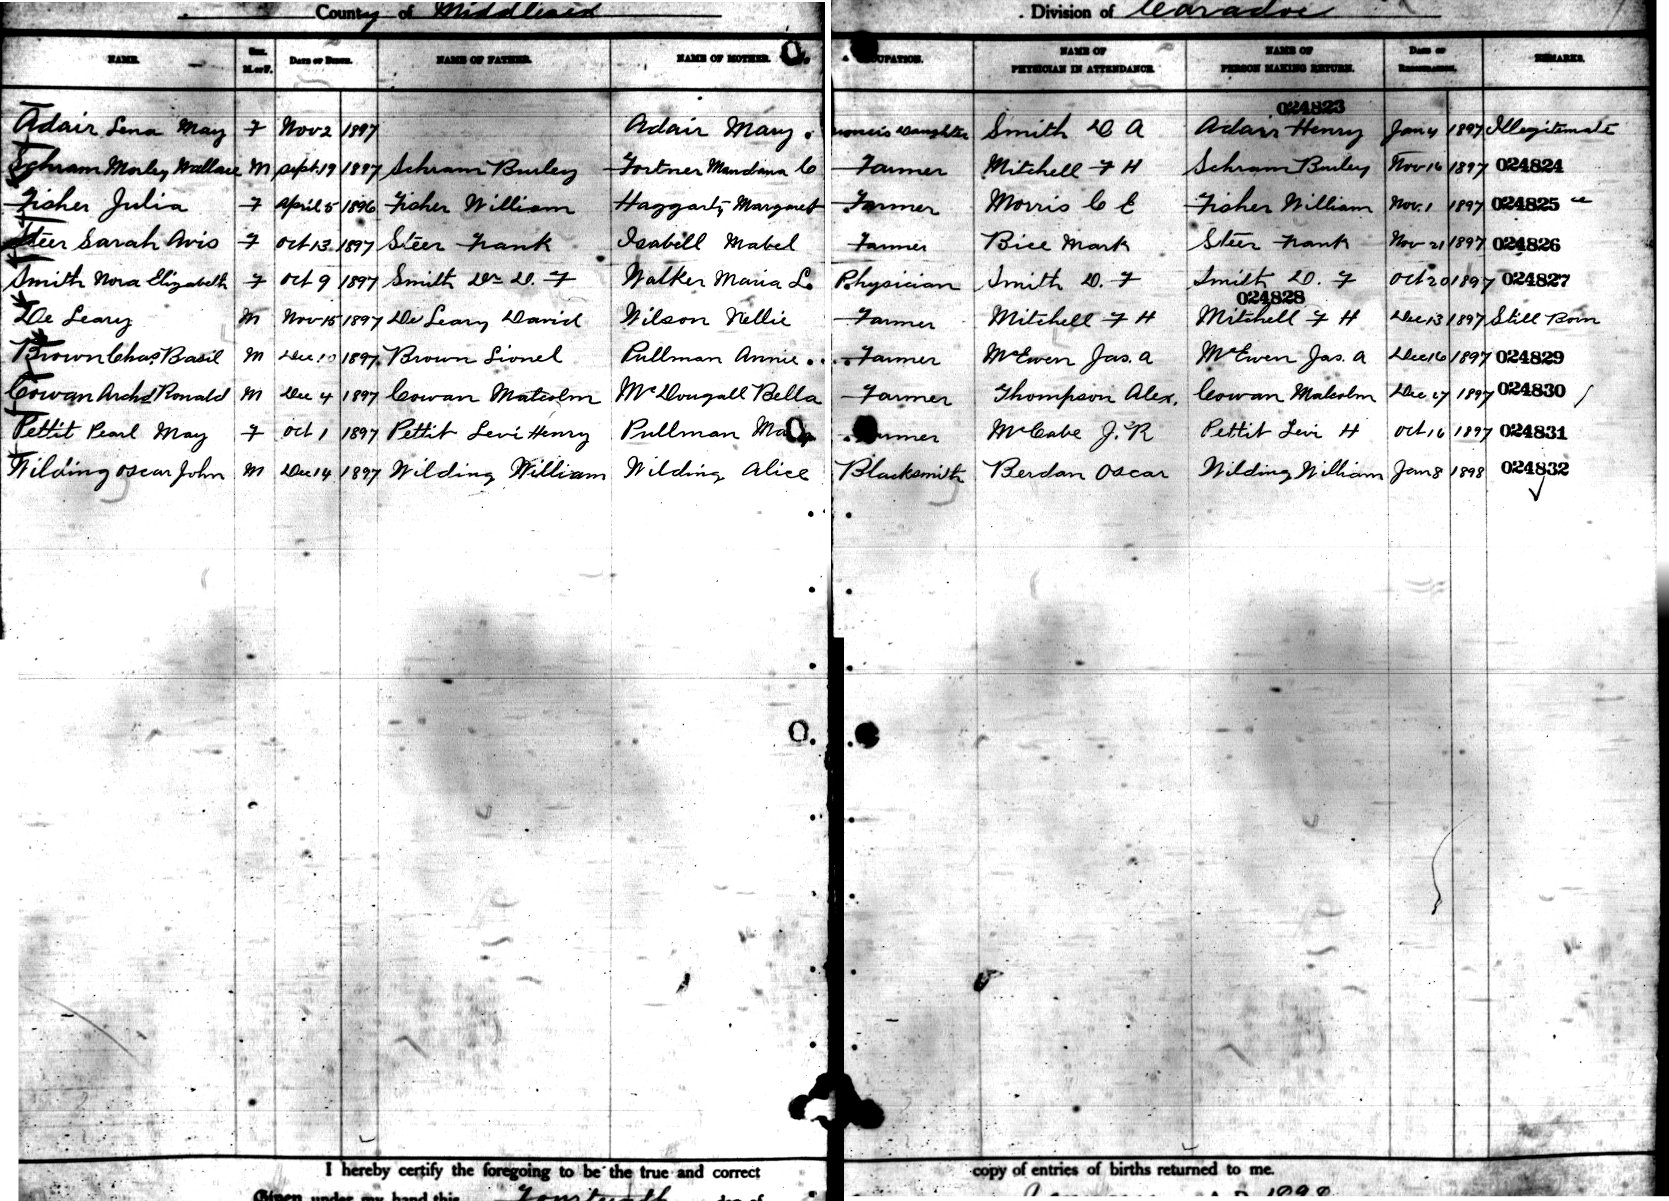 County of Middlesex Division of Caradoc
NAME. SEX. M. or F. DATE OF BIRTH. NAME OF FATHER. NAME OF MOTHER. OCCUPATION. NAME OF PHYSICIAN IN ATTENDANCE. NAME OF PERSON MAKING RETURN. DATE OF REGISTRATION. REMARKS.
024823
Adair Lena May F Nov 2 1897 Adair Mary Daughter Smith D A Adair Henry Jan 4 1897 Illegitimate
Schram Morley Wallace M Sept 19 1897 Schram Burley Fortner Mandana C Farmer Mitchell F H Schram Burley Nov 16 1897 024824
Fisher Julia F April 5 1896 Fisher William Haggarty Margaret Farmer Morris C E Fisher William Nov. 1 1897 024825
Steer Sarah Avis F Oct 13 1897 Steer Frank Isabell Mabel Farmer Bice Mark Steer Frank Nov 21 1897 024826
Smith Nora Elizabeth F Oct 9 1897 Smith Dr D. F Walker Maria L. Physician Smith D. F Smith D. F Oct 20 1897 024827
024828
De Leary M Nov 15 1897 De Leary David Wilson Nellie Farmer Mitchell F H Mitchell F H Dec 13 1897 Still Born
Brown Chas Basil M Dec 10 1897 Brown Lionel Pullman Annie Farmer McEwen Jas. A McEwen Jas. A Dec 16 1897 024829
Cowan Archd Ronald M Dec 4 1897 Cowan Malcolm McDougall Bella Farmer Thompson Alex. Cowan Malcolm Dec 27 1897 024830
Pettit Pearl May F Oct 1 1897 Pettit Levi Henry Pullman Farmer McCabe J. R Pettit Levi H Oct 16 1897 024831
Wilding Oscar John M Dec 14 1897 Wilding William Wilding Alice Blacksmith Berdan Oscar Wilding William Jan 8 1898 024832
I hereby certify the foregoing to be the true and correct copy of entries of births returned to me.
Given under my hand this Fourteenth day of A. D. 1898